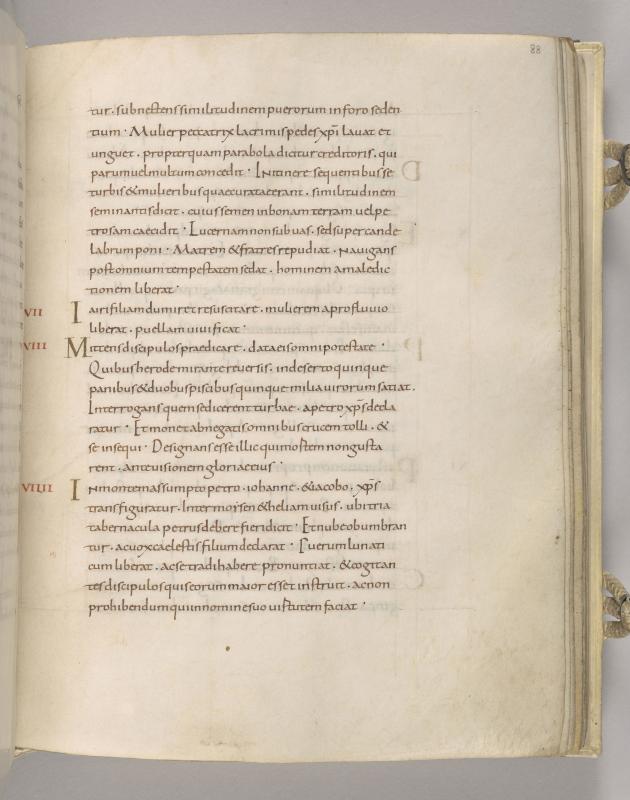 88
tur · subnectens similitudinem puerorum in foro seden
tium · Mulier peccatrix lacrimis pedes xpi lauat et
unguet · propter quam parabola dicitur creditoris · qui
parum uel multum concedit · In itinere sequentibus se
turbis & mulieribus quae curatae erant · similitudinem
seminantis dicit · cuius semen in bonam terram uel pe
trosam caecidit · Lucernam non sub uas · sed super cande
labrum poni · Matrem & fratres repudiat · Nauigans
post omnium tempestatem sedat · hominem a maledic
tionem liberat ·
VII Iairi filiam dum iret resuscitare · mulierem a profluuio
liberat · puellam uiuificat ·
VIII Mittens discipulos praedicare · data eis omni potestate ·
Quibus herode mirante reuersis · in deserto quinque
panibus & duobus piscibus quinque milia uirorum satiat ·
Interrogans quem se dicerent turbae · a petro xps decla
ratur · Et monet abnegatis omnibus crucem tolli · &
se insequi · Designans esse illic qui mortem non gusta
rent · ante uisionem gloriae eius ·
VIIII In montem assumpto petro · iohanne · & iacobo · xps
transfiguratur · Inter moysen & heliam uisus · ubi tria
tabernacula petrus debere fieri dicit · Et nube obumbran
tur · ac uox caelestis filium declarat · Puerum lunati
cum liberat · ac se tradi habere pronuntiat · & cogitan
tes discipulos quis eorum maior esset instruit · ac non
prohibendum qui in nomine suo uirtutem faciat ·